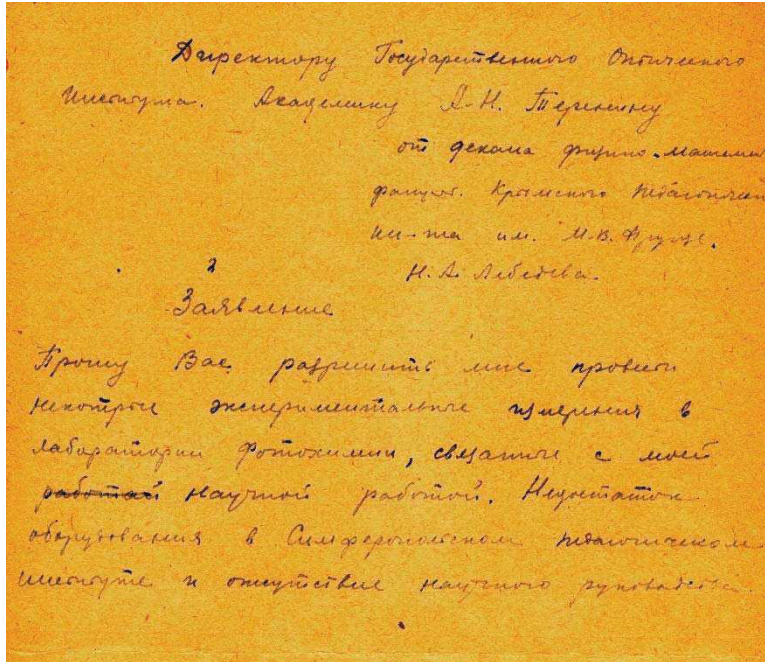 Директору Государственного Оптического
Института. Академику А.Н. Теренину
от декана физико-матема
факульт. Крымского педагогичес
ин-та им. М.В. Фрунзе.
Н.А. Лебедева.
Заявление
Прошу Вас разрешить мне провести
некоторые экспериментальные измерения в
лаборатории фотохимии, связанные с моей
работой научной работой. Недостаток
оборудования в Симферопольском педагогическом
институте и отсутствие научного руководства